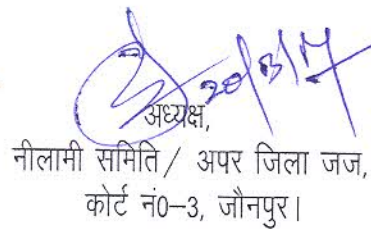 20/3/17
अध्यक्ष,
नीलामी समिति / अपर जिला जज,
कोर्ट नं0-3, जौनपुर।